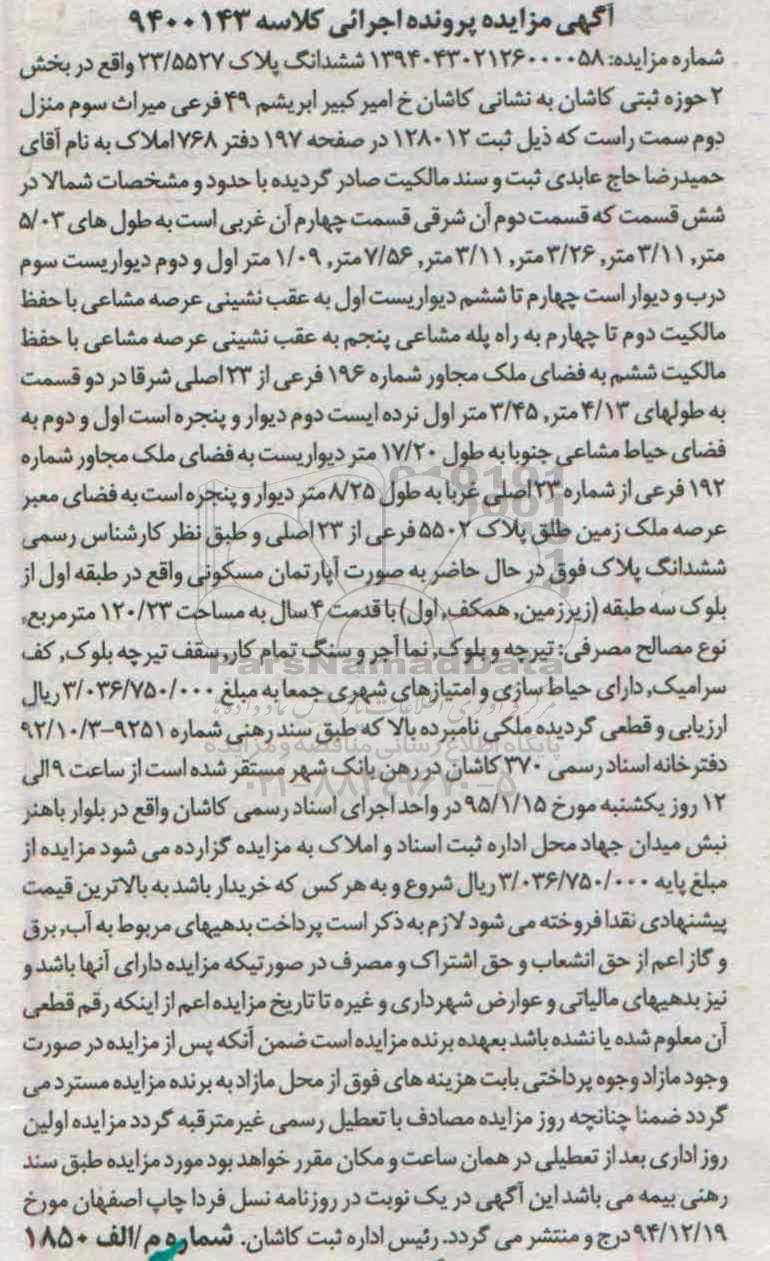 آگهی مزایده پرونده اجرائی کلاسه ۹۴۰۰۱۴۳
شماره مزایده: ۱۳۹۴۰۴۳۰۲۱۲۶۰۰۰۰۵۸ ششدانگ پلاک ۲۳/۵۵۲۷ واقع در بخش
۲ حوزه ثبتی کاشان به نشانی کاشان خ امیرکبیر ابریشم ۴۹ فرعی میراث سوم منزل
دوم سمت راست که ذیل ثبت ۱۲۸۰۱۲ در صفحه ۱۹۷ دفتر ۷۶۸ املاک به نام آقای
حمیدرضا حاج عابدی ثبت و سند مالکیت صادر گردیده با حدود و مشخصات شمالا در
شش قسمت که قسمت دوم آن شرقی قسمت چهارم آن غربی است به طول های ۵/۰۳
متر, ۳/۱۱ متر, ۳/۲۶ متر, ۳/۱۱ متر, ۷/۵۶ متر, ۱/۰۹ متر اول و دوم دیواریست سوم
درب و دیوار است چهارم تا ششم دیواریست اول به عقب نشینی عرصه مشاعی با حفظ
مالکیت دوم تا چهارم به راه پله مشاعی پنجم به عقب نشینی عرصه مشاعی با حفظ
مالکیت ششم به فضای ملک مجاور شماره ۱۹۶ فرعی از ۲۳ اصلی شرقا در دو قسمت
به طولهای ۴/۱۳ متر, ۳/۴۵ متر اول نرده ایست دوم دیوار و پنجره است اول و دوم به
فضای حیاط مشاعی جنوبا به طول ۱۷/۲۰ متر دیواریست به فضای ملک مجاور شماره
۱۹۲ فرعی از شماره ۲۳ اصلی غربا به طول ۸/۲۵ متر دیوار و پنجره است به فضای معبر
عرصه ملک زمین طلق پلاک ۵۵۰۲ فرعی از ۲۳ اصلی و طبق نظر کارشناس رسمی
ششدانگ پلاک فوق در حال حاضر به صورت آپارتمان مسکونی واقع در طبقه اول از
بلوک سه طبقه (زیرزمین, همکف, اول) با قدمت ۴ سال به مساحت ۱۲۰/۲۳ مترمربع,
نوع مصالح مصرفی: تیرچه و بلوک, نما آجر و سنگ تمام کار, سقف تیرچه بلوک, کف
ParsNamadData
سرامیک, دارای حیاط سازی و امتیازهای شهری جمعا به مبلغ ۳/۰۳۶/۷۵۰/۰۰۰ ریال
ارزیابی و قطعی گردیده ملکی نامبرده بالا که طبق سند رهنی شماره ۹۲۵۱-۹۲/۱۰/۳
پایگاه اطلاع رسانی مناقصه و مزایده
دفترخانه اسناد رسمی ۳۷۰ کاشان در رهن بانک شهر مستقر شده است از ساعت ۹ الی
۰۲۱-۸۸۳۴۹۶۷۰-۵
۱۲ روز یکشنبه مورخ ۹۵/۱/۱۵ در واحد اجرای اسناد رسمی کاشان واقع در بلوار باهنر
نبش میدان جهاد محل اداره ثبت اسناد و املاک به مزایده گزارده می شود مزایده از
مبلغ پایه ۳/۰۳۶/۷۵۰/۰۰۰ ریال شروع و به هر کس که خریدار باشد به بالاترین قیمت
پیشنهادی نقدا فروخته می شود لازم به ذکر است پرداخت بدهیهای مربوط به آب, برق
و گاز اعم از حق انشعاب و حق اشتراک و مصرف در صورتیکه مزایده دارای آنها باشد و
نیز بدهیهای مالیاتی و عوارض شهرداری و غیره تا تاریخ مزایده اعم از اینکه رقم قطعی
آن معلوم شده یا نشده باشد بعهده برنده مزایده است ضمن آنکه پس از مزایده در صورت
وجود مازاد وجوه پرداختی بابت هزینه های فوق از محل مازاد به برنده مزایده مسترد می
گردد ضمنا چنانچه روز مزایده مصادف با تعطیل رسمی غیرمترقبه گردد مزایده اولین
روز اداری بعد از تعطیلی در همان ساعت و مکان مقرر خواهد بود مورد مزایده طبق سند
رهنی بیمه می باشد این آگهی در یک نوبت در روزنامه نسل فردا چاپ اصفهان مورخ
۹۴/۱۲/۱۹ درج و منتشر می گردد. رئیس اداره ثبت کاشان. شماره م/الف ۱۸۵۰